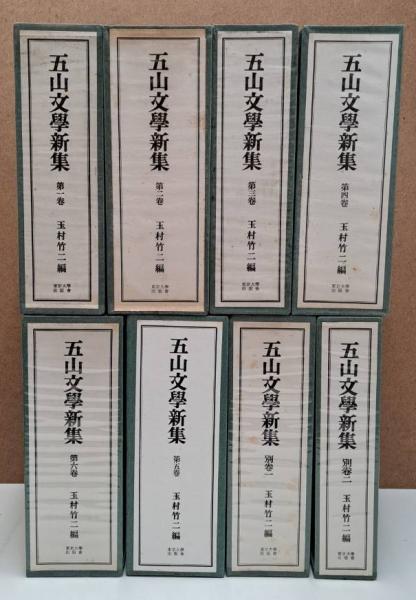 五山文學新集
第一卷
玉村竹二編
東京大學
出版會
五山文學新集
第二卷
玉村竹二編
東京大學
出版會
五山文學新集
第三卷
玉村竹二編
東京大學
出版會
五山文學新集
第四卷
玉村竹二編
東京大學
出版會
五山文學新集
第六卷
玉村竹二編
東京大學
出版會
五山文學新集
第五卷
玉村竹二編
東京大學
出版會
五山文學新集
別卷一
玉村竹二編
東京大學
出版會
五山文學新集
別卷二
玉村竹二編
東京大學
出版會